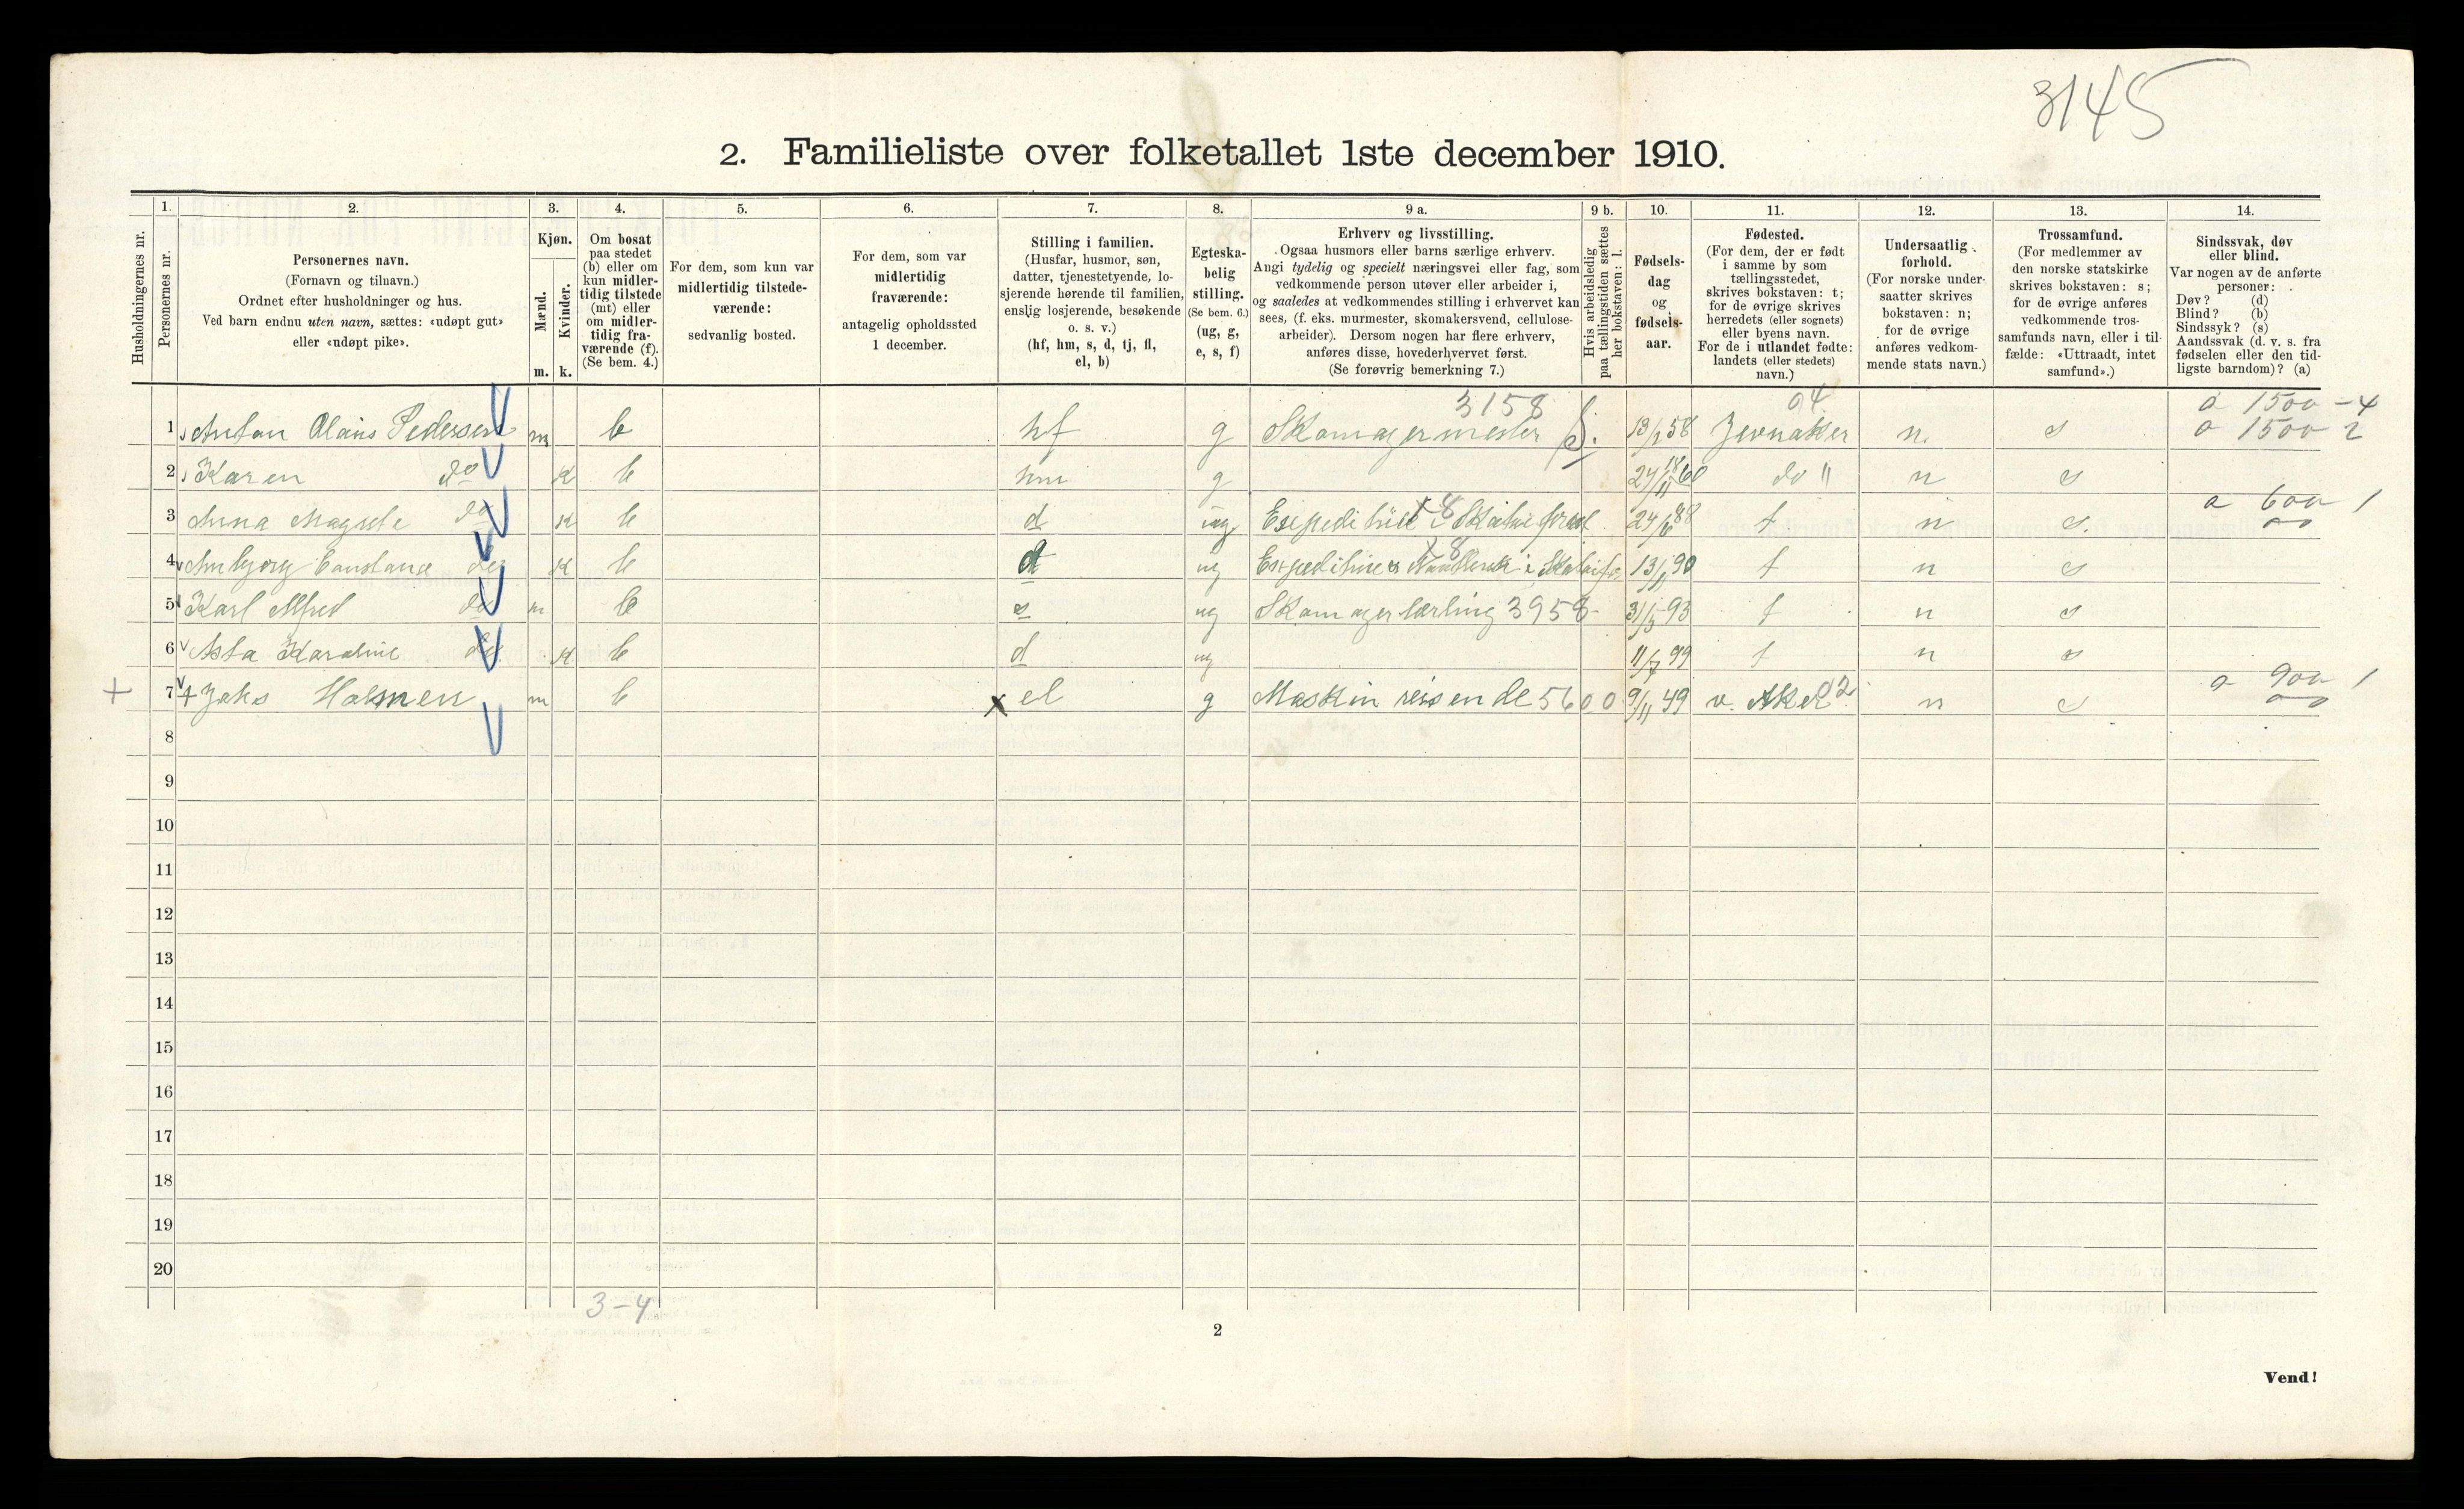 3145
2. Familieliste over folketallet 1ste december 1910.
1. 2. 3. 4. 5. 6. 7. 8. 9 a. 9 b. 10. 11. 12. 13. 14.
Husholdningernes nr.
Personernes nr.
Personernes navn.
(Fornavn og tilnavn.)
Ordnet efter husholdninger og hus.
Ved barn endnu uten navn, sættes: «udøpt gut»
eller «udøpt pike».
Kjøn.
Mænd.
Kvinder.
m. k.
Om bosat
paa stedet
(b) eller om
kun midler-
tidig tilstede
(mt) eller
om midler-
tidig fra-
værende (f).
(Se bem. 4.)
For dem, som kun var
midlertidig tilstede-
værende:
sedvanlig bosted.
For dem, som var
midlertidig
fraværende:
antagelig opholdssted
1 december.
Stilling i familien.
(Husfar, husmor, søn,
datter, tjenestetyende, lo-
sjerende hørende til familien,
enslig losjerende, besøkende
o. s. v.)
(hf, hm, s, d, tj, fl,
el, b)
Egteska-
belig
stilling.
(Se bem. 6.)
(ug, g,
e, s, f)
Erhverv og livsstilling.
Ogsaa husmors eller barns særlige erhverv.
Angi tydelig og specielt næringsvei eller fag, som
vedkommende person utøver eller arbeider i,
og saaledes at vedkommendes stilling i erhvervet kan
sees, (f. eks. murmester, skomakersvend, cellulose-
arbeider). Dersom nogen har flere erhverv,
anføres disse, hovederhvervet først.
(Se forøvrig bemerkning 7.)
Hvis arbeidsledig
paa tællingstiden sættes
her bokstaven: l.
Fødsels-
dag
og
fødsels-
aar.
Fødested.
(For dem, der er født
i samme by som
tællingsstedet,
skrives bokstaven: t;
for de øvrige skrives
herredets (eller sognets)
eller byens navn.
For de i utlandet fødte:
landets (eller stedets)
navn.)
Undersaatlig
forhold.
(For norske under-
saatter skrives
bokstaven: n;
for de øvrige
anføres vedkom-
mende stats navn.)
Trossamfund.
(For medlemmer av
den norske statskirke
skrives bokstaven: s;
for de øvrige anføres
vedkommende tros-
samfunds navn, eller i til-
fælde: «Uttraadt, intet
samfund».)
Sindssvak, døv
eller blind.
Var nogen av de anførte
personer:
Døv? (d)
Blind? (b)
Sindssyk? (s)
Aandssvak (d. v. s. fra
fødselen eller den tid-
ligste barndom)? (a)
3158 04 a 1500 - 4
1 Anton Olaus Pedersen m b hf g Skomagermester S. 13/1 58 Jevnaker n. s o 1500 2
2 Karen do k b hm g 24/11 60 do " n s
3 Anna Magrete do k b d ug 24/6 88 t n s. a 600 1
4 Constance do k b d ug 13/11 90 t n s
5 Karl Alfred do m b s ug Skomagerlærling 3958 31/5 93 t n s
6 Asta Karoline do k b d ug 11/7 99 t n s
+ 7 + Holmen m b x el g Maskin reisende 5600 9/11 49 v. Aker 02 n s a 900 1
8
9
10
11
12
13
14
15
16
17
18
19
20
3-4
2
Vend!